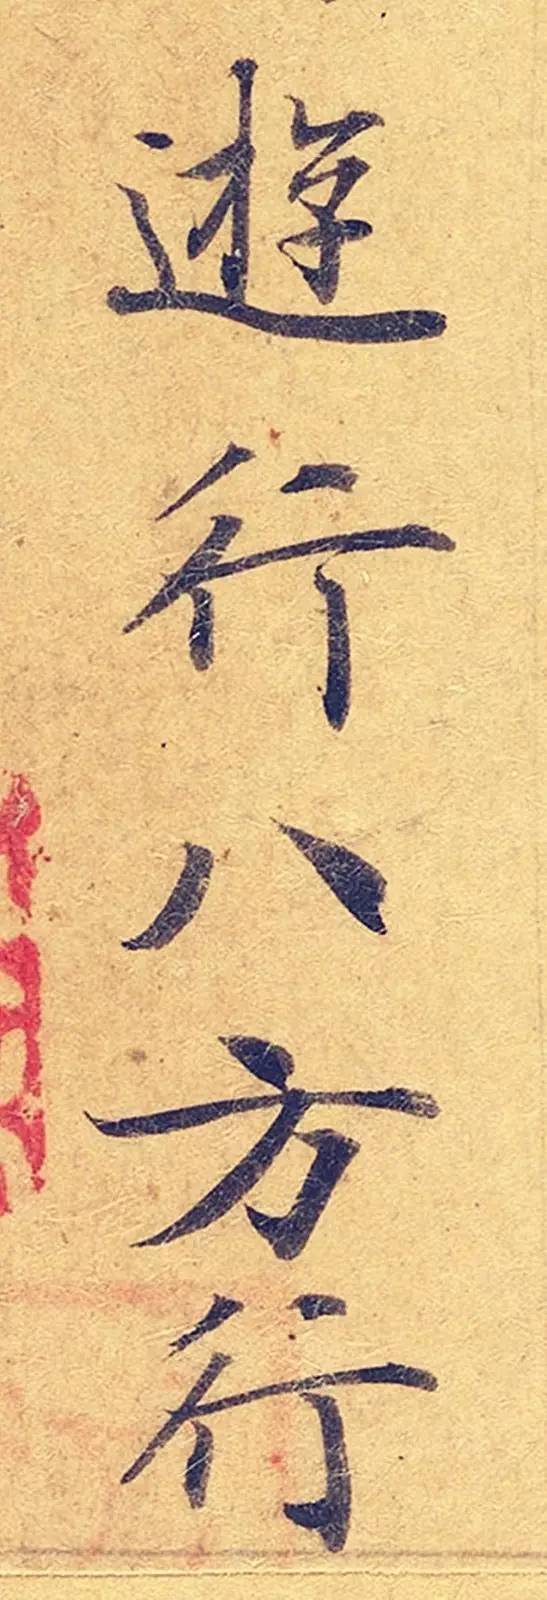 遊行八方行